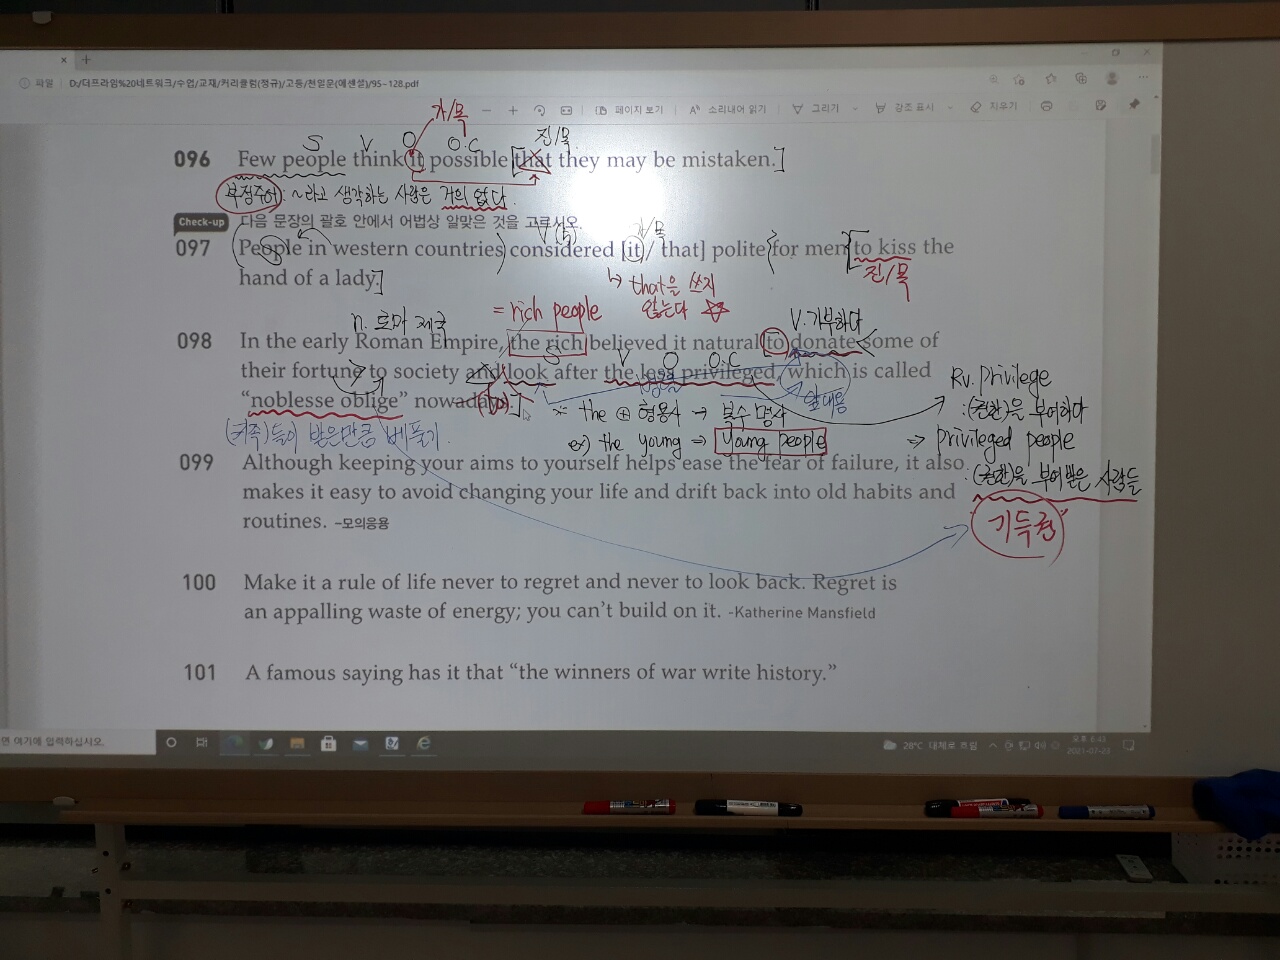 파일 D:/더프라임%20네트워크/수업/교재/커리큘럼(정규)/고등/천일문(에센셜)/95~128.pdf
페이지 보기 소리내어 읽기 그리기 강조 표시 지우기
가/목
S V O O.C 진/목
096 Few people think it possible [that they may be mistaken.]
부정주어 : ~라고 생각하는 사람은 거의 없다.
Check-up 다음 문장의 괄호 안에서 어법상 알맞은 것을 고르시오.
V (5) 가/목
097 People in western countries) considered [it / that] polite for men [to kiss the
hand of a lady.]
진/목
↳ that을 쓰지
않는다 ☆
= rich people
n. 로마 제국 V. 기부하다
098 In the early Roman Empire, the rich believed it natural [to donate some of
S V O O.C
their fortune to society and look after the less privileged, which is called
“noblesse oblige” nowadays.]
(to)
앞내용
(귀족)들이 받은만큼 베풀기.
※ the ⊕ 형용사 → 복수 명사
ex) the young → young people
Rv. privilege
: (권한)을 부여하다
⇒ privileged people
: (권한)을 부여받은 사람들
기득권
099 Although keeping your aims to yourself helps ease the fear of failure, it also
makes it easy to avoid changing your life and drift back into old habits and
routines. -모의응용
100 Make it a rule of life never to regret and never to look back. Regret is
an appalling waste of energy; you can’t build on it. -Katherine Mansfield
101 A famous saying has it that “the winners of war write history.”
면 여기에 입력하십시오.
28°C 대체로 흐림 오후 8:43
2021-07-23